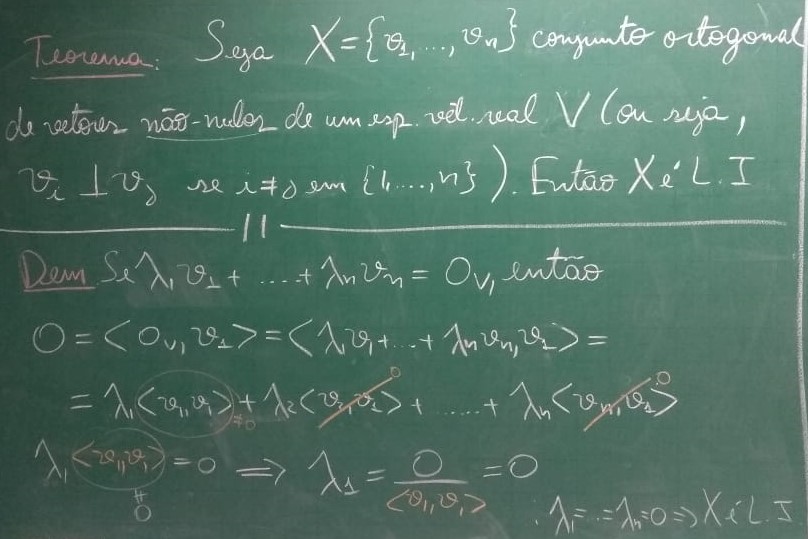 Teorema: Seja X = {v1, ..., vn} conjunto ortogonal
de vetores não-nulos de um esp. vet. real V (ou seja,
vi ⊥ vj se i ≠ j em {1, ..., n}). Então X é L.I
Dem Se λ1 v1 + .... + λn vn = 0v, então
0 = <0v, v1> = <λ1 v1 + ... + λn vn, v1> =
= λ1 <v1, v1> ≠0 + λ2 <v2, v1> 0 + ..... + λn <vn, v1> 0
λ1 <v1, v1> = 0 ⇒ λ1 = 0 / <v1, v1> = 0
≠ 0
∴ λ1 = ... = λn = 0 ⇒ X é L.I